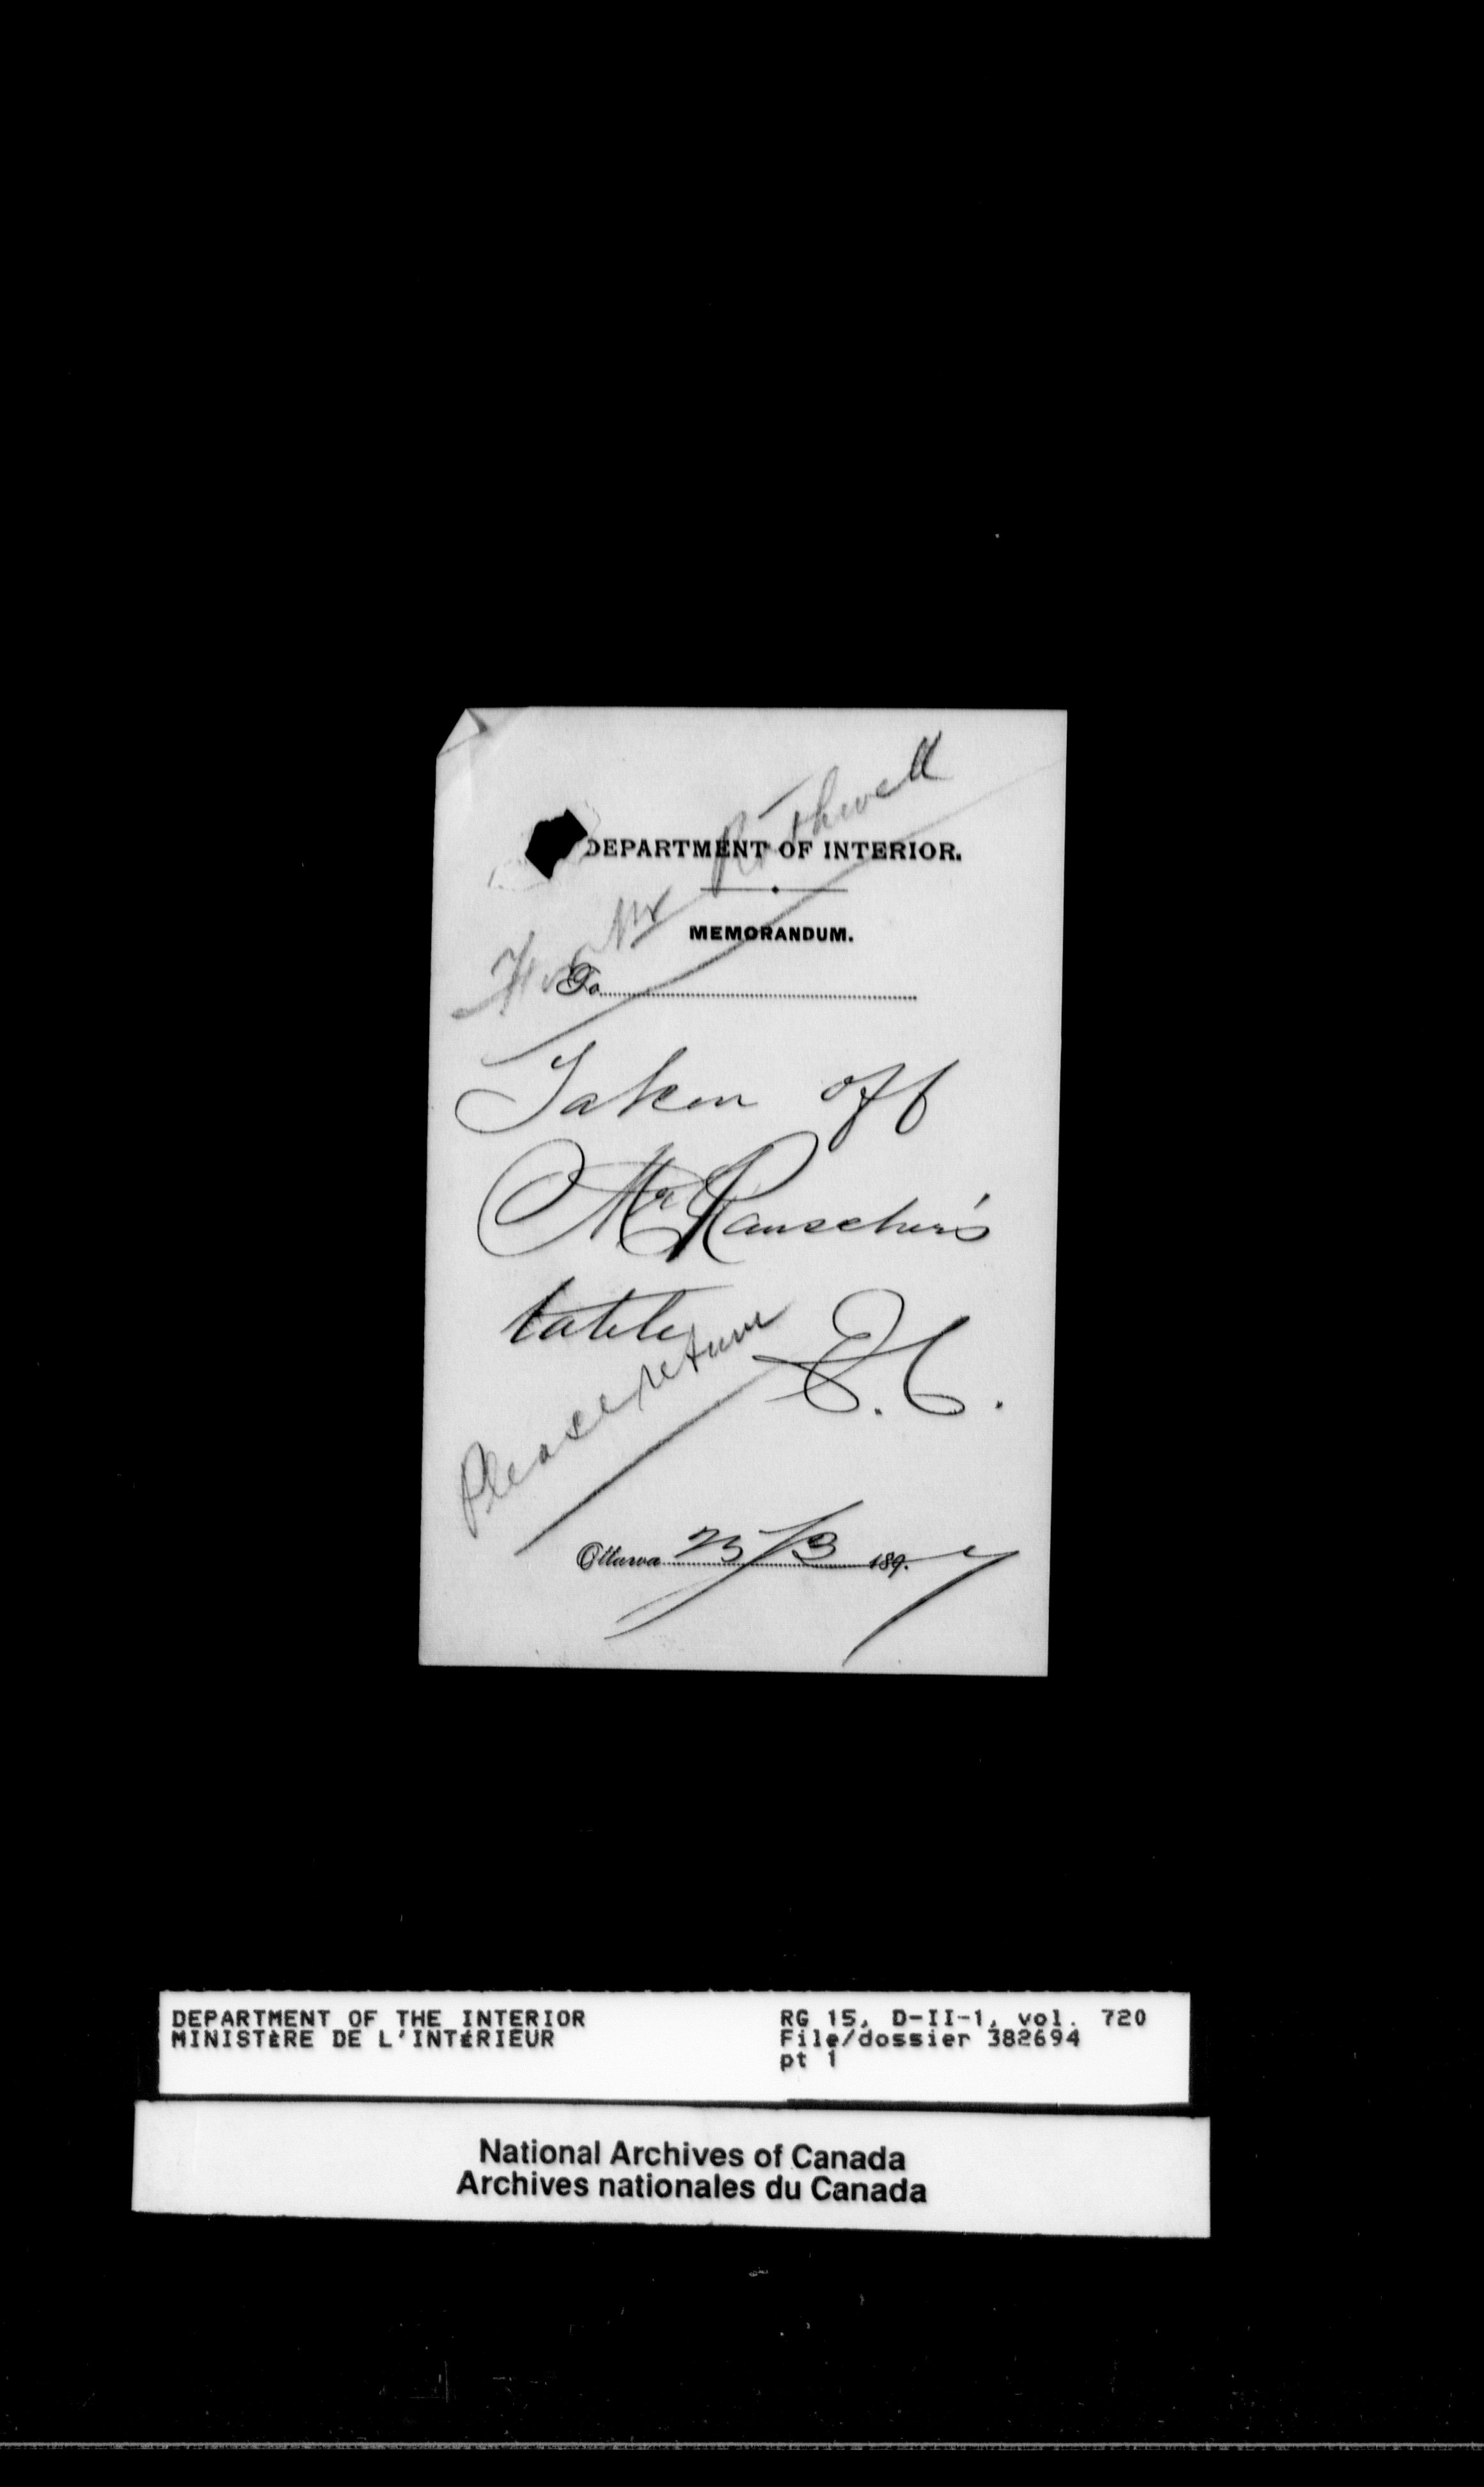 For Mr Rothwell
DEPARTMENT OF INTERIOR.
MEMORANDUM.
To
Taken off
Mr Rauscher's
table
Please return
Ottawa 23/3 1897
DEPARTMENT OF THE INTERIOR
MINISTÈRE DE L'INTÉRIEUR
RG 15, D-II-1, vol. 720
File/dossier 382694
pt 1
National Archives of Canada
Archives nationales du Canada